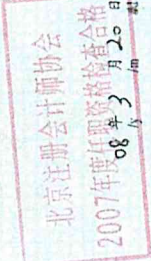 北京注册会计师协会
2007年度任职资格检查合格
08年3月20日
/y /m